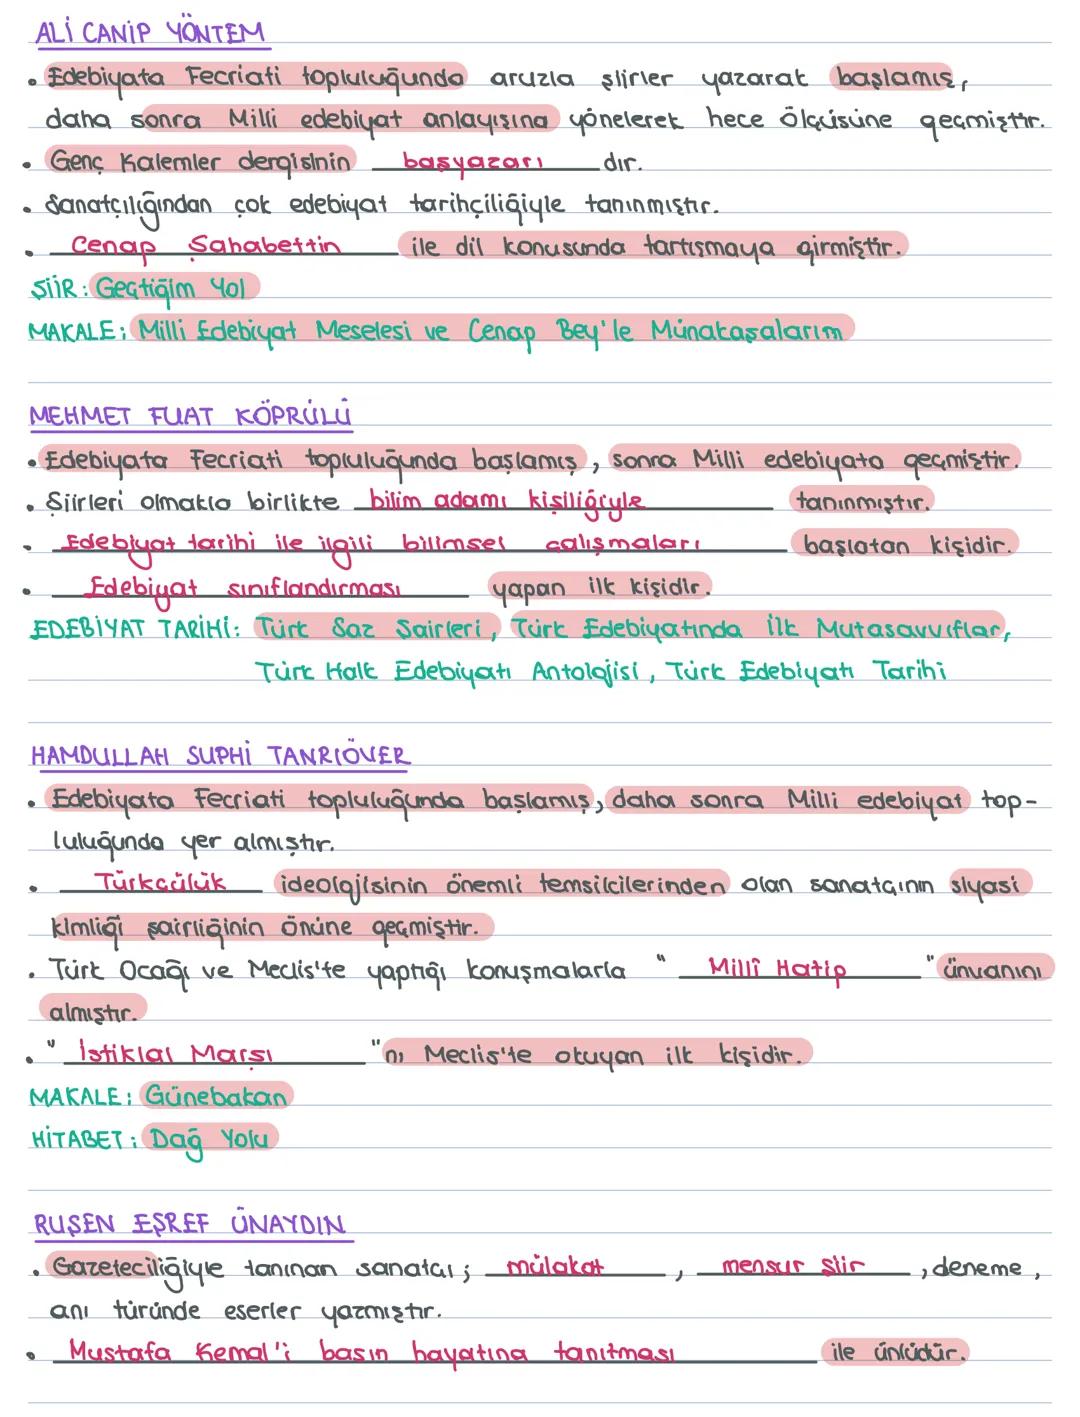 ALİ CANİP YÖNTEM
• Edebiyata Fecriati topluluğunda aruzla şiirler yazarak başlamış,
daha sonra Milli edebiyat anlayışına yönelerek hece ölçüsüne geçmiştir.
• Genç Kalemler dergisinin başyazarı dır.
• Sanatçılığından çok edebiyat tarihçiliğiyle tanınmıştır.
• Cenap Şahabettin ile dil konusunda tartışmaya girmiştir.
ŞİİR: Geçtiğim Yol
MAKALE: Milli Edebiyat Meselesi ve Cenap Bey'le Münakaşalarım
MEHMET FUAT KÖPRÜLÜ
• Edebiyata Fecriati topluluğunda başlamış, sonra Milli edebiyata geçmiştir.
• Şiirleri olmakla birlikte bilim adamı kişiliğiyle tanınmıştır.
• Edebiyat tarihi ile ilgili bilimsel çalışmaları başlatan kişidir.
• Edebiyat sınıflandırması yapan ilk kişidir.
EDEBİYAT TARİHİ: Türk Saz Şairleri, Türk Edebiyatında İlk Mutasavvıflar,
Türk Halk Edebiyatı Antolojisi, Türk Edebiyatı Tarihi
HAMDULLAH SUPHİ TANRIÖVER
• Edebiyata Fecriati topluluğunda başlamış, daha sonra Milli edebiyat top-
luluğunda yer almıştır.
• Türkçülük ideolojisinin önemli temsilcilerinden olan sanatçının siyasi
kimliği şairliğinin önüne geçmiştir.
• Türk Ocağı ve Meclis'te yaptığı konuşmalarla "Millî Hatip" ünvanını
almıştır.
• "İstiklal Marşı"nı Meclis'te okuyan ilk kişidir.
MAKALE: Günebakan
HİTABET: Dağ Yolu
RUŞEN EŞREF ÜNAYDIN
• Gazeteciliğiyle tanınan sanatçı; mülakat, mensur şiir, deneme,
anı türünde eserler yazmıştır.
• Mustafa Kemal'i basın hayatına tanıtması ile ünlüdür.